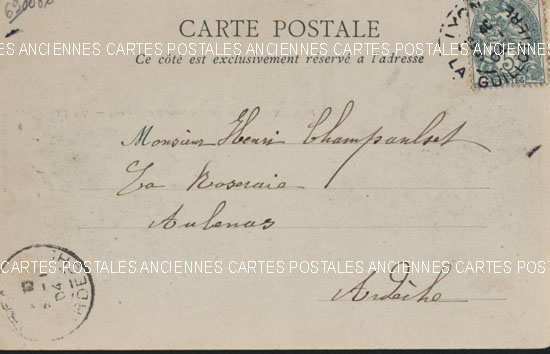 CARTE POSTALE
CARTES POSTALES ANCIENNES CARTES POSTALES ANCIENNES CARTES POSTALES
Ce côté est exclusivement réservé à l'adresse
LYON
LA GUILLOTIÈRE
Monsieur Henri
La Roseraie
Aubenas
CARTES POSTALES ANCIENNES CARTES POSTALES ANCIENNES CARTES POSTALES
04
Ardèche